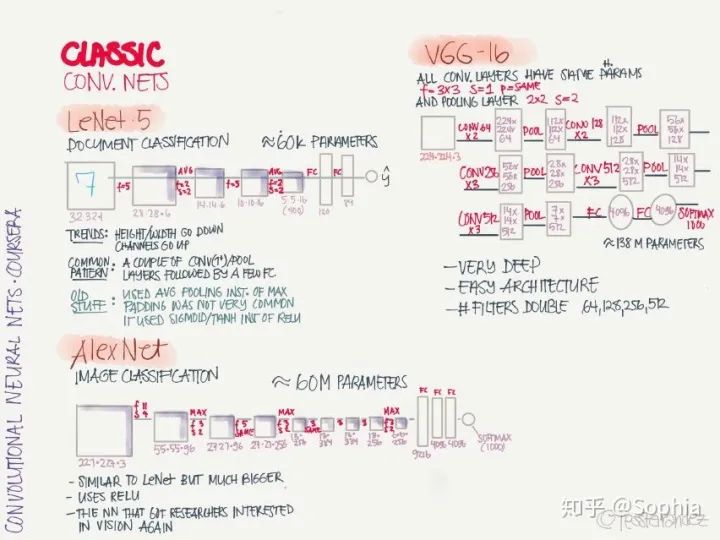 CLASSIC
CONV. NETS
LeNet·5
DOCUMENT CLASSIFICATION
≈60K PARAMETERS
7
f=5
AVG
f=2
S=2
f=5
AVG
f=2
S=2
FC
FC
ŷ
32·32·1
28·28·6
14·14·6
10·10·16
5·5·16
(400)
120
84
TRENDS: HEIGHT/WIDTH GO DOWN
CHANNELS GO UP
COMMON PATTERN: A COUPLE OF CONV(1+)/POOL
LAYERS FOLLOWED BY A FEW FC
OLD STUFF: USED AVG POOLING INST. OF MAX
PADDING WAS NOT VERY COMMON
IT USED SIGMOID/TANH INST OF RELU
AlexNet
IMAGE CLASSIFICATION
≈ 60M PARAMETERS
f 11
S 4
MAX
f 3
S 2
f 5
SAME
MAX
f 3
S 2
3
SAME
3
3
MAX
f 3
S 2
FC
FC
FC
227·227·3
55·55·96
27·27·96
27·27·256
13·
256
13·
384
13·
384
13·
256
256
9216
4096
4096
SOFTMAX
(1000)
- SIMILAR TO LeNet BUT MUCH BIGGER
- USES RELU
- THE NN THAT GOT RESEARCHERS INTERESTED
IN VISION AGAIN
VGG-16
ALL CONV. LAYERS HAVE SAME PARAMS
f=3X3 S=1 P=SAME
AND POOLING LAYER 2X2 S=2
224·224·3
CONV 64
X2
224×
224×
64
POOL
112×
112×
64
CONV 128
X2
112×
112×
128
POOL
56×
56×
128
CONV 256
X3
56×
56×
256
POOL
28×
28×
256
CONV 512
X3
28×
28×
512
POOL
14×
14×
512
CONV 512
X3
14×
14×
512
POOL
7×
7×
512
FC
4096
FC
4096
SOFTMAX
1000
≈138 M PARAMETERS
- VERY DEEP
- EASY ARCHITECTURE
- # FILTERS DOUBLE 64,128,256,512
CONVOLUTIONAL NEURAL NETS · COURSERA
知乎 @Sophia